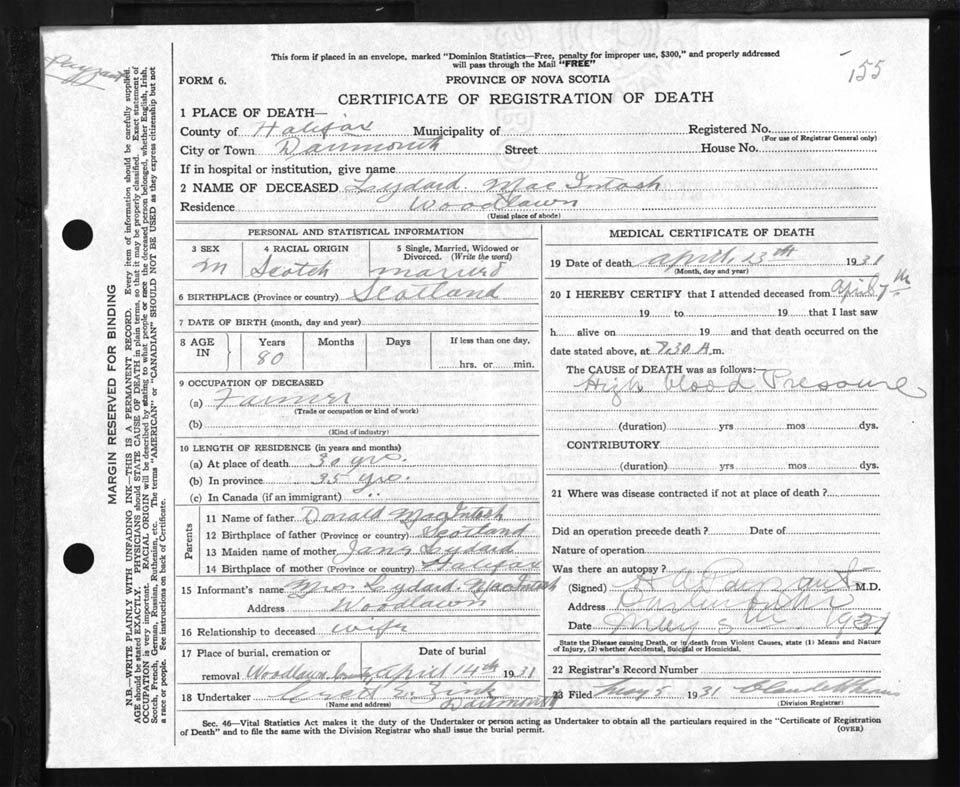 This form if placed in an envelope, marked "Dominion Statistics—Free, penalty for improper use, $300," and properly addressed
will pass through the Mail "FREE"
155
Payzant
FORM 6.
PROVINCE OF NOVA SCOTIA
CERTIFICATE OF REGISTRATION OF DEATH
1 PLACE OF DEATH—
County of Halifax Municipality of Registered No.
(For use of Registrar General only)
City or Town Dartmouth Street House No.
If in hospital or institution, give name
2 NAME OF DECEASED Lydard MacIntosh
Residence Woodlawn
(Usual place of abode)
PERSONAL AND STATISTICAL INFORMATION
3 SEX 4 RACIAL ORIGIN 5 Single, Married, Widowed or
Divorced. (Write the word)
M Scotch married
6 BIRTHPLACE (Province or country) Scotland
7 DATE OF BIRTH (month, day and year)
8 AGE IN Years Months Days If less than one day,
80 hrs. or min.
9 OCCUPATION OF DECEASED
(a) Farmer
(Trade or occupation or kind of work)
(b)
(Kind of industry)
10 LENGTH OF RESIDENCE (in years and months)
(a) At place of death 30 yrs.
(b) In province 35 yrs.
(c) In Canada (if an immigrant) "
Parents
11 Name of father Donald MacIntosh
12 Birthplace of father (Province or country) Scotland
13 Maiden name of mother Jane Lydard
14 Birthplace of mother (Province or country) Halifax
15 Informant's name Mrs Lydard MacIntosh
Address Woodlawn
16 Relationship to deceased wife
17 Place of burial, cremation or Date of burial
removal Woodlawn April 14th 1931
18 Undertaker
(Name and address) Dartmouth
MEDICAL CERTIFICATE OF DEATH
19 Date of death April 13th 1931
(Month, day and year)
20 I HEREBY CERTIFY that I attended deceased from April 7th
19 to 19 that I last saw
h alive on 19 and that death occurred on
date stated above, at 7.30 A.m.
The CAUSE of DEATH was as follows:
High blood Pressure
(duration) yrs mos dys.
CONTRIBUTORY
(duration) yrs mos dys.
21 Where was disease contracted if not at place of death?
Did an operation precede death? Date of
Nature of operation
Was there an autopay?
(Signed) H A Payzant M.D.
Address Dartmouth N.S.
Date May 5th 1931
State the Disease causing Death, or in death from Violent Causes, state (1) Means and Nature
of Injury, (2) whether Accidental, Suicidal or Homicidal.
22 Registrar's Record Number
23 Filed May 5 1931
(Division Registrar)
Sec. 46—Vital Statistics Act makes it the duty of the Undertaker or person acting as Undertaker to obtain all the particulars required in the "Certificate of Registration
of Death" and to file the same with the Division Registrar who shall issue the burial permit.
(OVER)
MARGIN RESERVED FOR BINDING
N.B.—WRITE PLAINLY WITH UNFADING INK—THIS IS A PERMANENT RECORD. Every item of information should be carefully supplied.
AGE should be stated EXACTLY. PHYSICIANS should STATE CAUSE OF DEATH in plain terms, so that it may be properly classified. Exact statement of
OCCUPATION is very important. RACIAL ORIGIN will be described by stating to what people or race the deceased person belonged, whether English, Irish,
Scotch, French, German, Russian, Ruthenian, etc. The terms "AMERICAN" or "CANADIAN" SHOULD NOT BE USED as they express citizenship but not
a race or people. See instructions on back of Certificate.